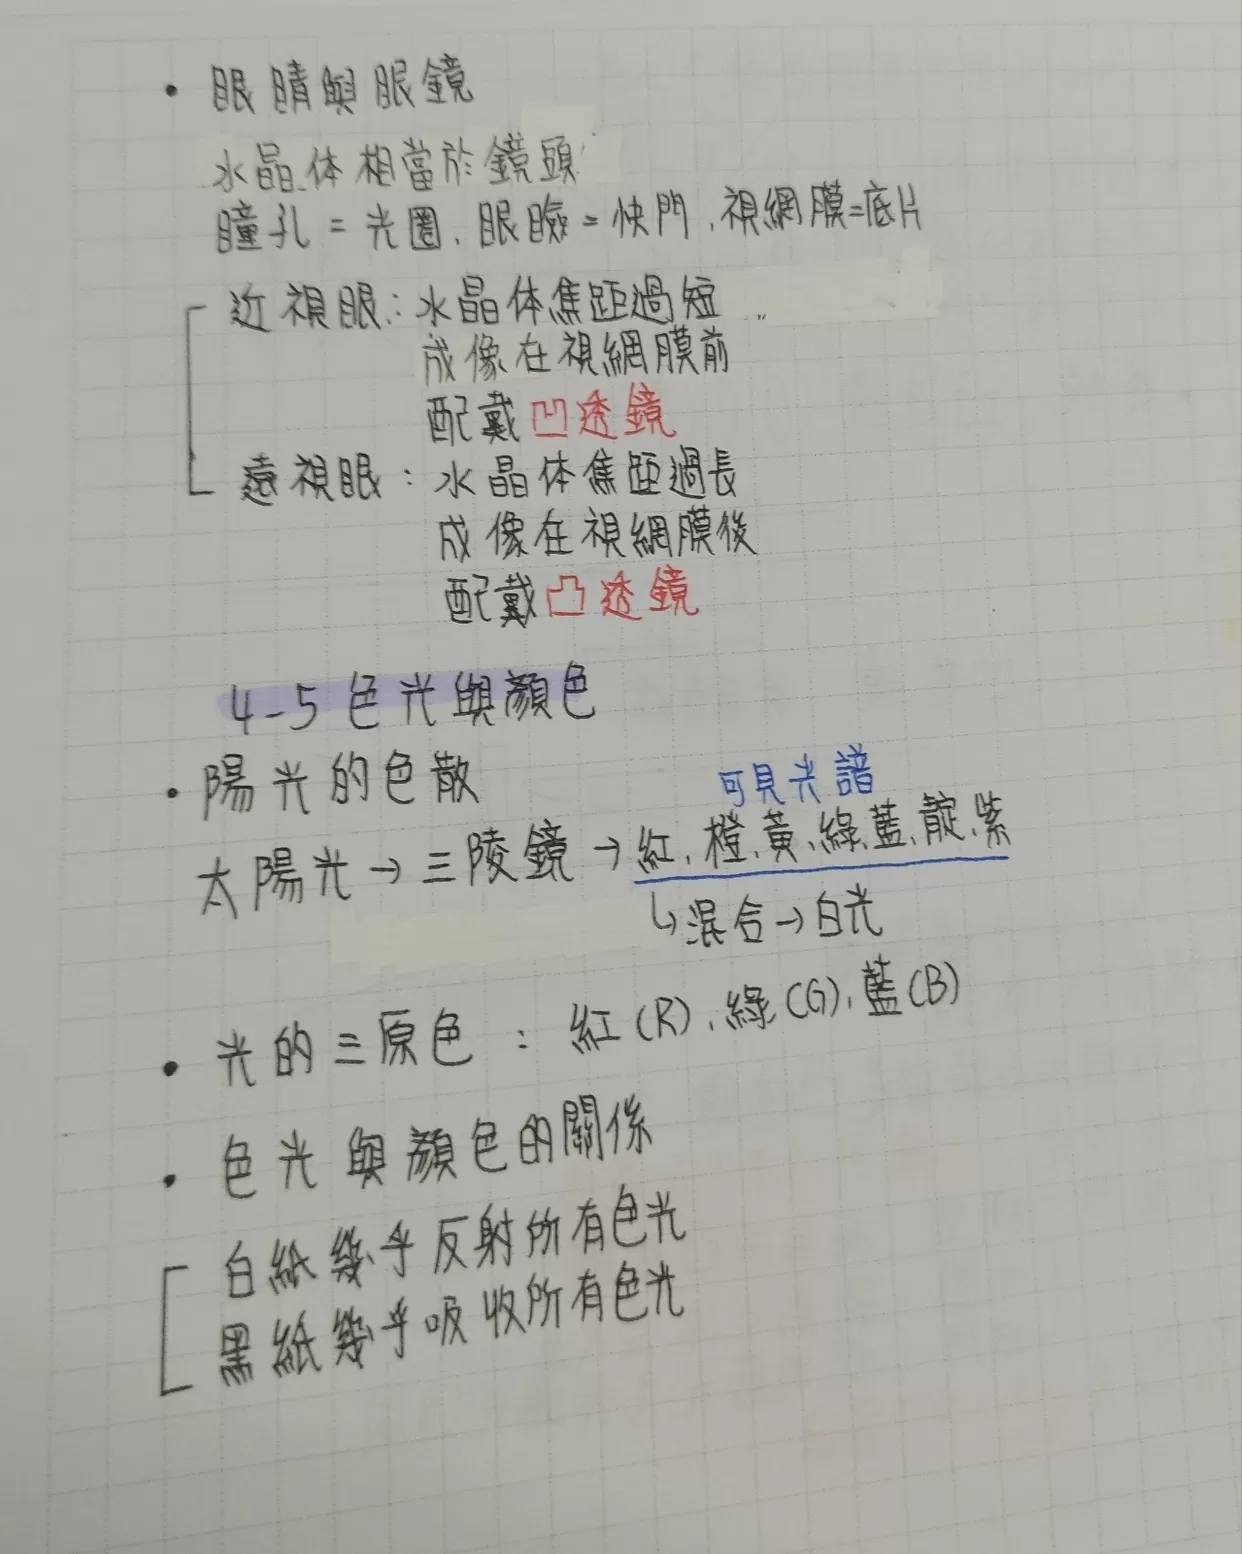 • 眼睛與眼鏡
水晶体相當於鏡頭
瞳孔=光圈、眼瞼=快門、視網膜=底片
近視眼:水晶体焦距過短
成像在視網膜前
配戴凹透鏡
遠視眼:水晶体焦距過長
成像在視網膜後
配戴凸透鏡
4-5 色光與顏色
• 陽光的色散
可見光譜
太陽光→三陵鏡→紅、橙、黃、綠、藍、靛、紫
↳混合→白光
• 光的三原色:紅(R)、綠(G)、藍(B)
• 色光與顏色的關係
白紙幾乎反射所有色光
黑紙幾乎吸收所有色光